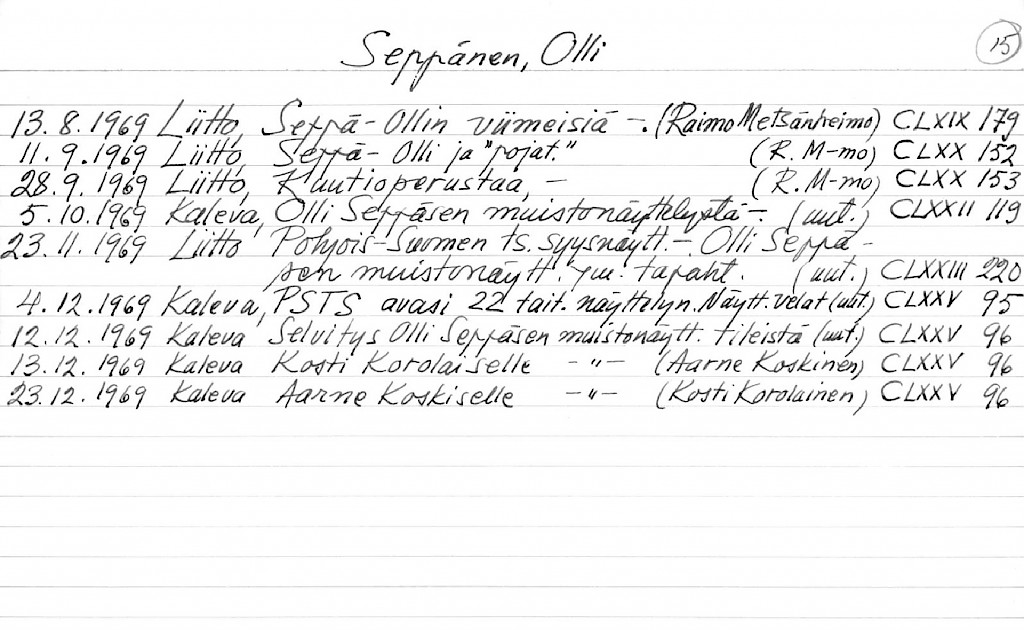 Seppänen, Olli
15
13.8.1969 Liitto, Seppä-Ollin viimeisiä -. (Raimo Metsänheimo) CLXIX 179
11.9.1969 Liitto, Seppä-Olli ja "pojat." (R. M-mo) CLXX 152
28.9.1969 Liitto, Kuutioperustaa, - (R. M-mo) CLXX 153
5.10.1969 Kaleva, Olli Seppäsen muistonäyttelystä -. (uut.) CLXXII 119
23.11.1969 Liitto Pohjois-Suomen ts. syysnäytt. - Olli Seppä-
sen muistonäytt. ym. tapaht. (uut.) CLXXIII 220
4.12.1969 Kaleva, PSTS avasi 22 tait. näyttelyn. Näytt. velat (uut.) CLXXV 95
12.12.1969 Kaleva Selvitys Olli Seppäsen muistonäytt. tileistä (uut.) CLXXV 96
13.12.1969 Kaleva Kosti Korolaiselle -"- (Aarne Koskinen) CLXXV 96
23.12.1969 Kaleva Aarne Koskiselle -"- (Kosti Korolainen) CLXXV 96